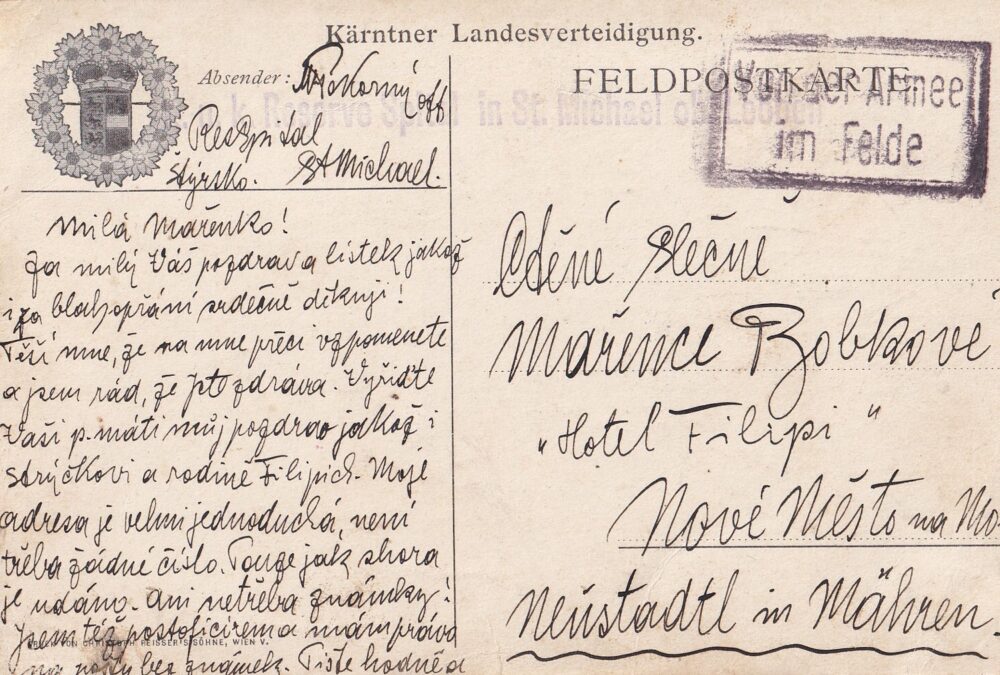 Kärntner Landesverteidigung.
Absender: Pokorný
FELDPOSTKARTE.
Von der Armee
im Felde
k. k. Reserve Spital in St. Michael ob Leoben
ResSpital
Štýrsko. St Michael.
Milá Mařenko!
Za milý Váš pozdrav a lístek jakož
i za blahopřání srdečně děkuji!
Těší mne, že na mne přeci vzpomenete
a jsem rád, že jste zdráva. Vyřiďte
Vaší p. máti můj pozdrav jakož i
strýčkovi a rodině Filipich. Moje
adresa je velmi jednoduchá, není
třeba žádné číslo. Pouze jak shora
je udáno. Ani netřeba známky!
Jsem též postoficírem a mám právo
na poštu bez známek. Pište hodně a
CHRISTOPH REISSER'S SÖHNE, WIEN V.
Ctěné slečně
Mařence Bobkové
„Hotel Filipi"
Nové Město na Mo
Neustadtl in Mähren.